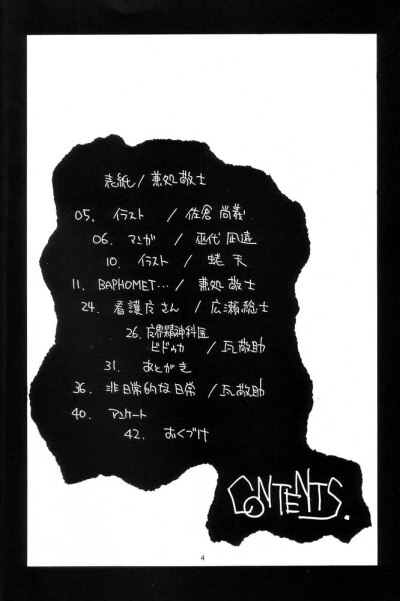 表紙 / 兼処敬士
05. イラスト / 佐倉尚義
06. マンガ / 巫代凪遠
10. イラスト / 蜷天
11. BAPHOMET… / 兼処敬士
24. 看護疲さん / 広瀬総士
26. 魔界精神科医
ピドゥカ / 瓦敬助
31. あとがき
36. 非日常的な日常 / 瓦敬助
40. アンケート
42. おくづけ
CONTENTS.
4